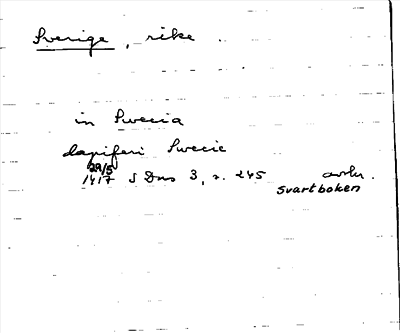 Sverige, rike.
in Swecia
dapiferi Swecie
29/5
1417 SDns 3, s. 245 avskr.
svartboken